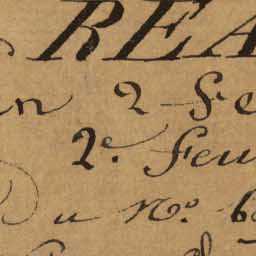 REA
n 2 Fe
2e. Feu
Du No. 6